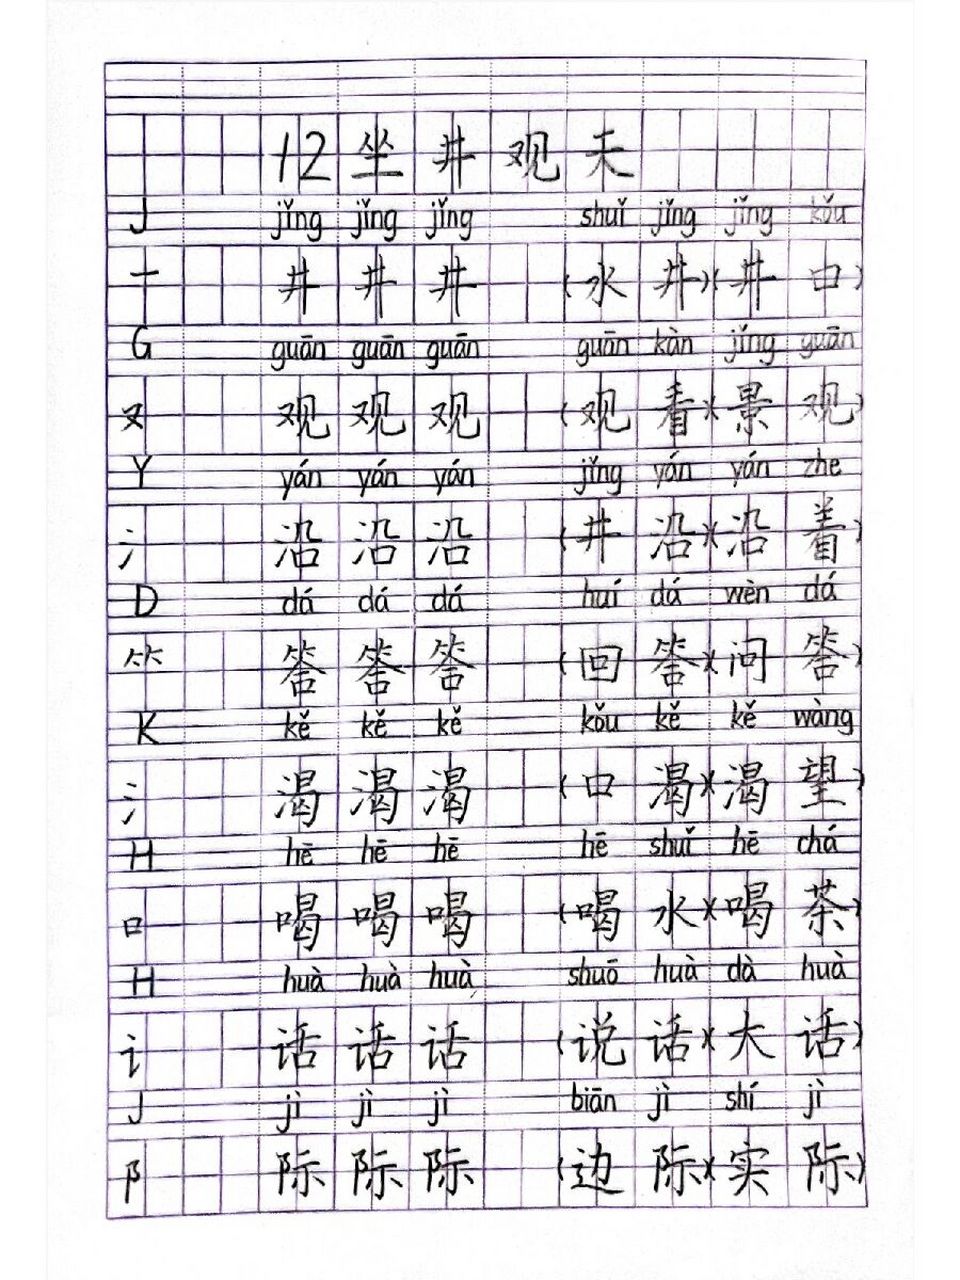 12坐井观天
J jǐng jǐng jǐng shuǐ jǐng jǐng kǒu
一 井 井 井 (水 井)(井 口)
G guān guān guān guān kàn jǐng guān
又 观 观 观 (观 看)(景 观)
Y yán yán yán jǐng yán yán zhe
氵 沿 沿 沿 (井 沿)(沿 着)
D dá dá dá huí dá wèn dá
⺮ 答 答 答 (回 答)(问 答)
K kě kě kě kǒu kě kě wàng
氵 渴 渴 渴 (口 渴)(渴 望)
H hē hē hē hē shuǐ hē chá
口 喝 喝 喝 (喝 水)(喝 茶)
H huà huà huà shuō huà dà huà
讠 话 话 话 (说 话)(大 话)
J jì jì jì biān jì shí jì
阝 际 际 际 (边 际)(实 际)